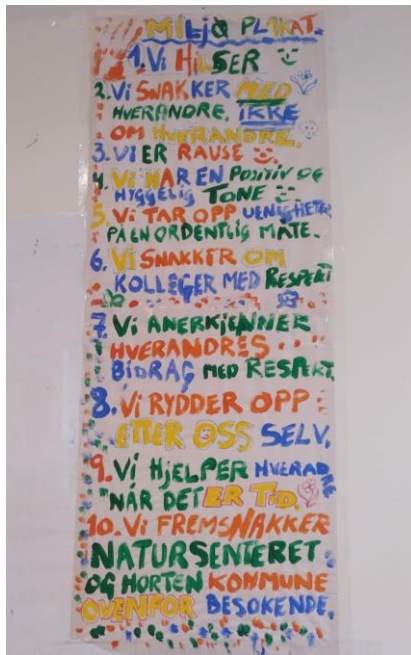 MILJØ PLAKAT.
1. Vi HiLSER
2. Vi SNAKKER MED
HVERANDRE, IKKE
OM HVERANDRE.
3. Vi ER RAUSE
4. Vi HAR EN POSiTiV OG
HYGGELIG TONE
5. Vi TAR OPP UENiGHETER
PÅ EN ORDENTLIG MÅTE.
6. Vi SNAKKER OM
KOLLEGER MED RESPEKT
7. Vi ANERKJENNER
HVERANDRES
BiDRAG MED RESPEKT.
8. Vi RYDDER OPP
ETTER OSS SELV.
9. Vi HJELPER HVERADRE
NÅR DET ER TiD.
10. Vi FREMSNAKKER
NATURSENTERET
OG HORTEN KOMMUNE
OVENFOR BESØKENDE.